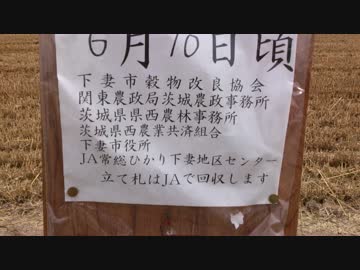 6月10日頃
下妻市穀物改良協会
関東農政局茨城農政事務所
茨城県県西農林事務所
茨城県西農業共済組合
下妻市役所
JA常総ひかり下妻地区センター
立て札はJAで回収します